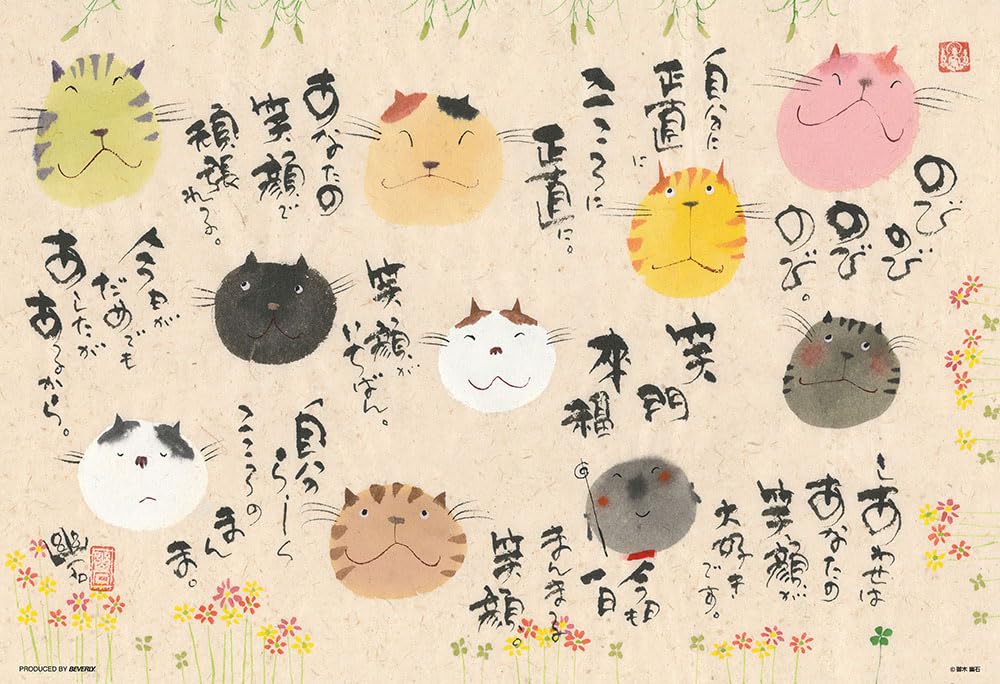 のび
のび
のび
のび。
自分に
正直に
こころに
正直に。
あなたの
笑顔で
頑張れる。
笑門
来福
笑顔が
いちばん。
今日が
だめでも
あしたが
あるから。
しあわせは
あなたの
笑顔が
大好き
です。
今日も
一日
まんまる
笑顔。
自分
らしく
こころの
まん
ま。
幽石
PRODUCED BY BEVERLY.
© 御木 幽石